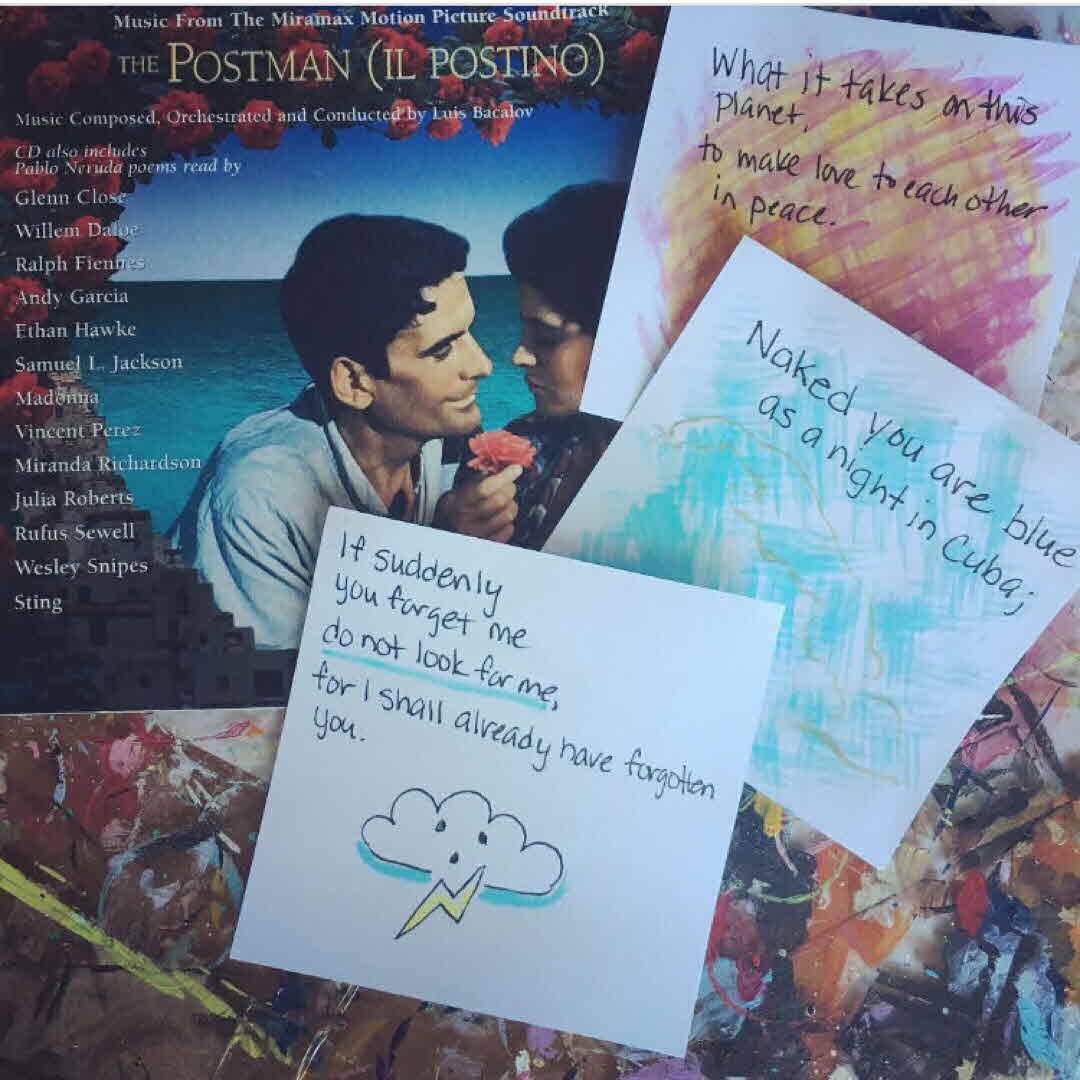 Music From The Miramax Motion Picture Soundtrack
THE POSTMAN (IL POSTINO)
Music Composed, Orchestrated and Conducted by Luis Bacalov
CD also includes
Pablo Neruda poems read by
Glenn Close
Willem Dafoe
Ralph Fiennes
Andy Garcia
Ethan Hawke
Samuel L. Jackson
Madonna
Vincent Perez
Miranda Richardson
Julia Roberts
Rufus Sewell
Wesley Snipes
Sting
What it takes on this
planet,
to make love to each other
in peace.
Naked you are blue
as a night in Cuba;
If suddenly
you forget me
do not look for me,
for I shall already have forgotten
you.